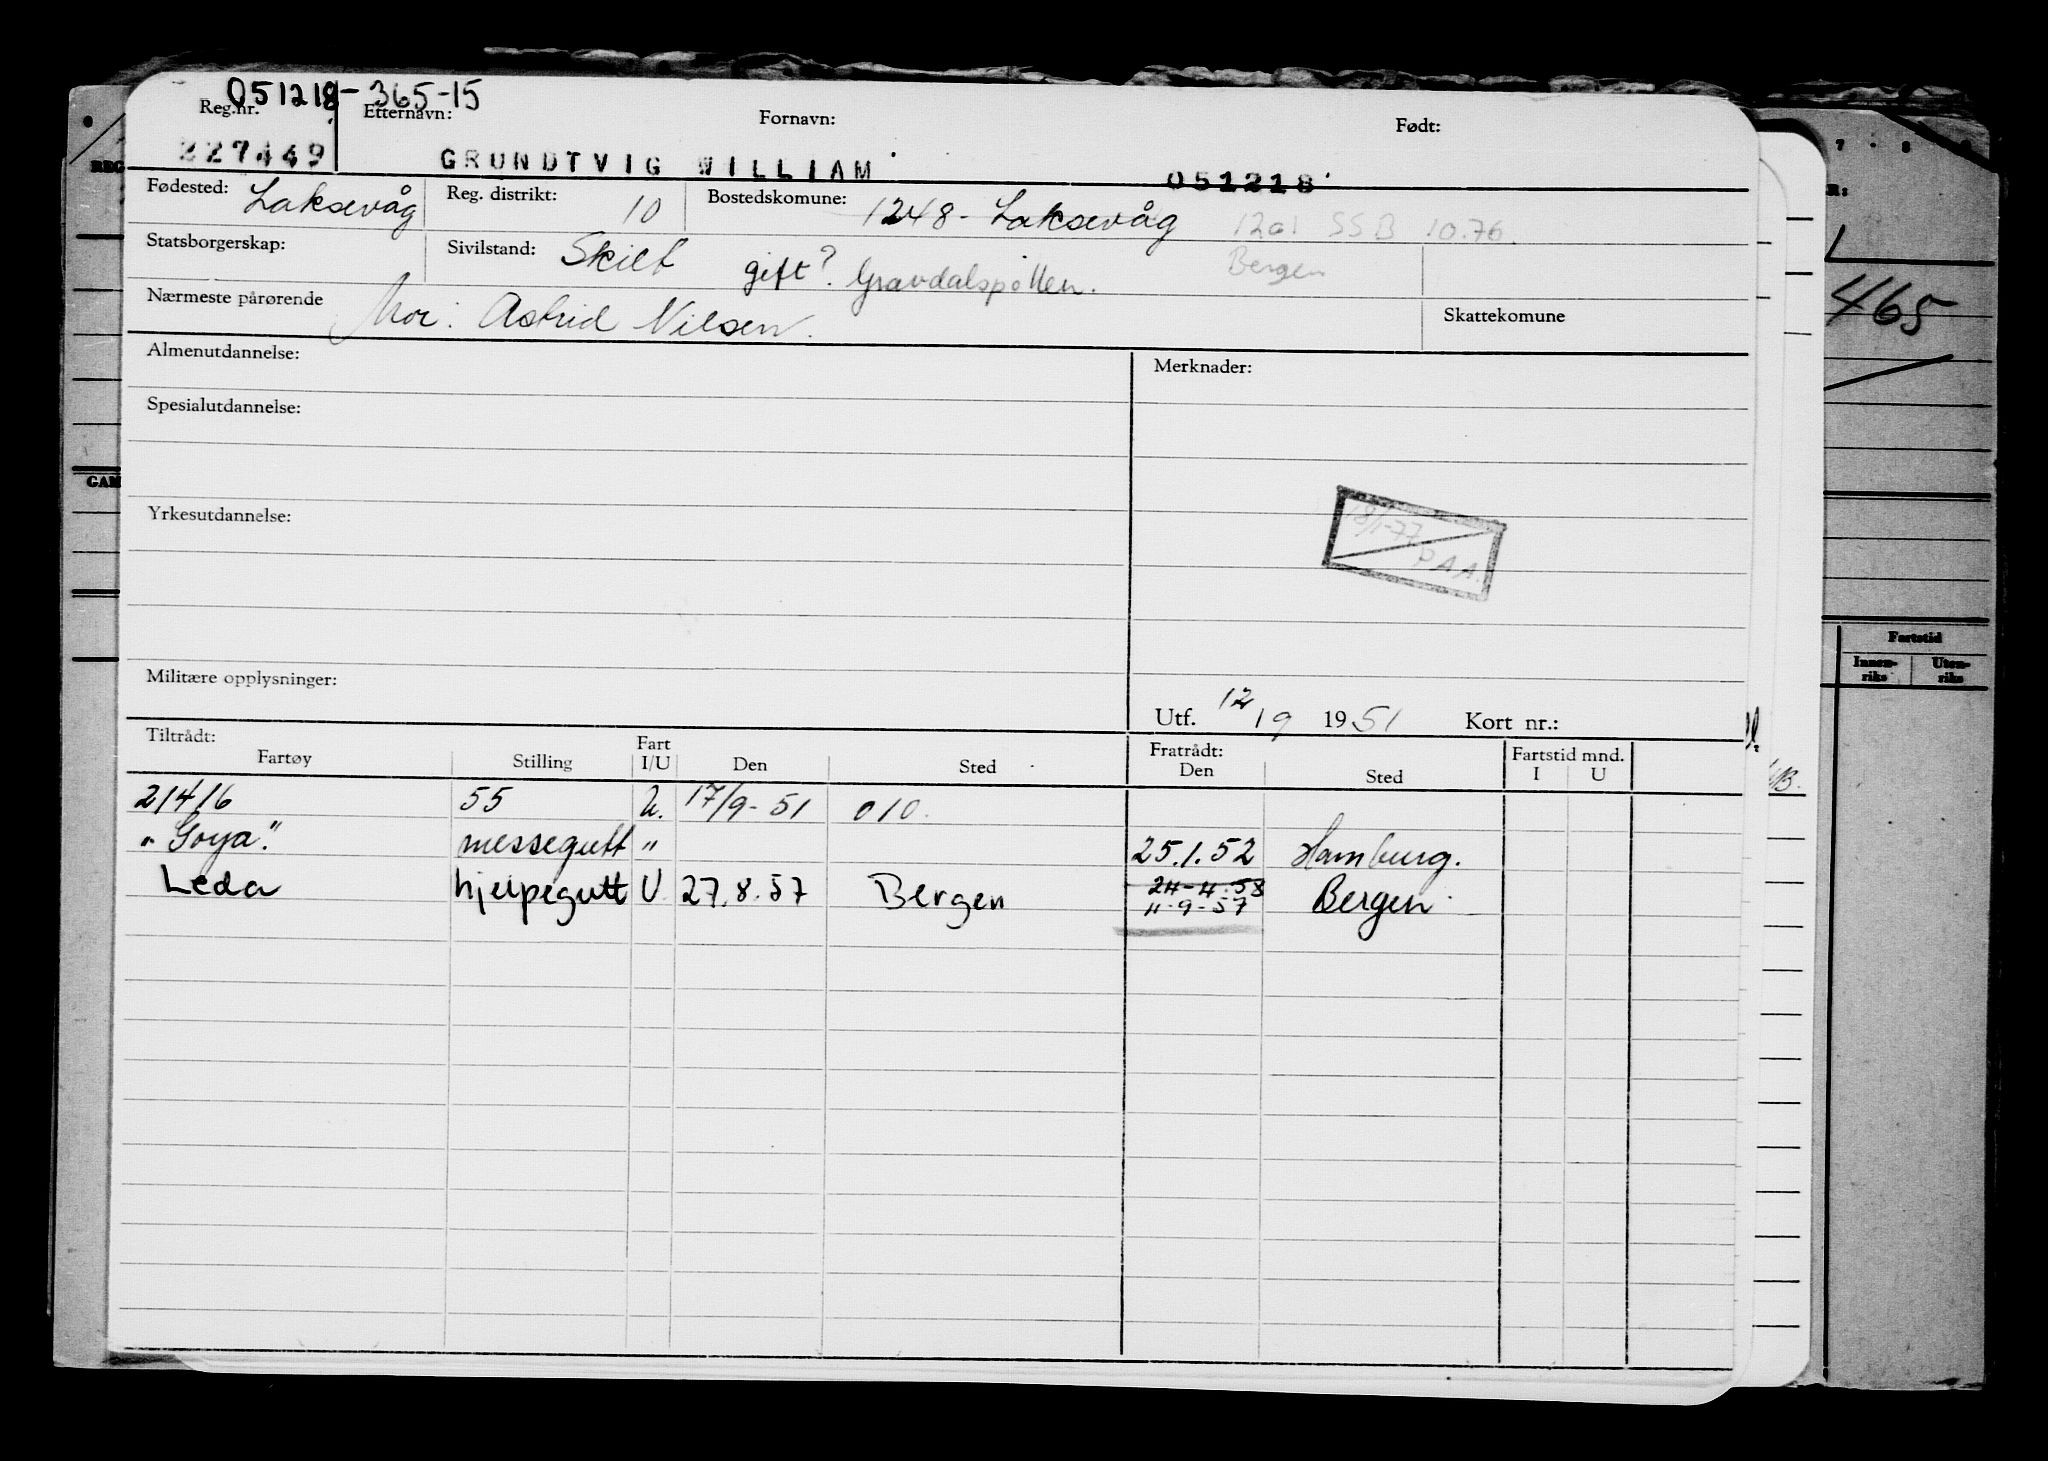 051218-365-15
Reg.nr. Etternavn: Fornavn: Født:
227449 GRUNDTVIG WILLIAM 051218
Fødested: Laksevåg Reg. distrikt: 10 Bostedskomune: 1248 - Laksevåg 1201 SSB 10.76.
Statsborgerskap: Sivilstand: Skilt gift? Gravdalspollen. Bergen
Nærmeste pårørende Mor: Astrid Nilsen. Skattekomune
Almenutdannelse: Merknader:
Spesialutdannelse:
Yrkesutdannelse:
18/1-77 PAA.
Militære opplysninger:
Utf. 12/9 1951 Kort nr.:
Tiltrådt: Fratrådt:
Fartøy Stilling Fart I/U Den Sted Den Sted Fartstid mnd. I U
21416 55 U. 17/9-51 010.
"Goya". messegutt " 25.1.52 Hamburg.
Leda hjelpegutt U. 27.8.57 Bergen 24-4-58 Bergen
11-9-57
REG
GAM
7 8
R:
465
Fartstid
Innen-riks Uten-riks